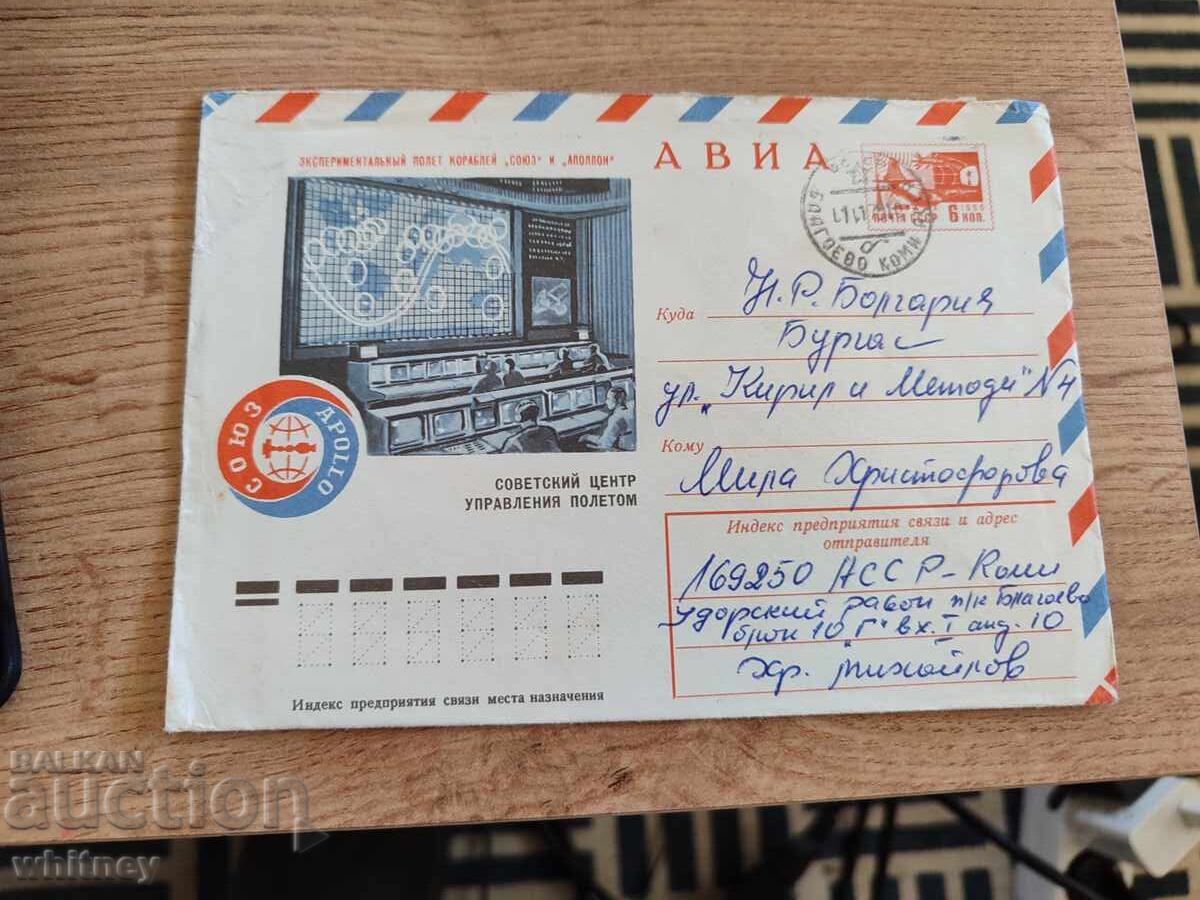 ЭКСПЕРИМЕНТАЛЬНЫЙ ПОЛЕТ КОРАБЛЕЙ „СОЮЗ" И „АПОЛЛОН"
АВИА
ПОЧТА СССР 1966 6 КОП.
БЛАГОЕВО КОМИ
СОЮЗ
APOLLO
СОВЕТСКИЙ ЦЕНТР
УПРАВЛЕНИЯ ПОЛЕТОМ
Куда Н.Р. Болгария
Бургас
ул. „Кирил и Методи" N4
Кому
Мила Христофорова
Индекс предприятия связи и адрес
отправителя
169250 АССР-Коми
Удорский район п/к Благоево
блок 10 „Г" вх. I ап. 10
Хр. Михайлов
Индекс предприятия связи места назначения
BALKAN
auction
whitney